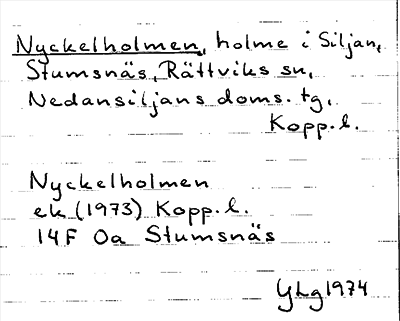 Nyckelholmen, holme i Siljan,
Stumsnäs, Rättviks sn,
Nedansiljans doms. tg.
Kopp. l.
Nyckelholmen
ek (1973) Kopp. l.
14F 0a Stumsnäs
YLg 1974